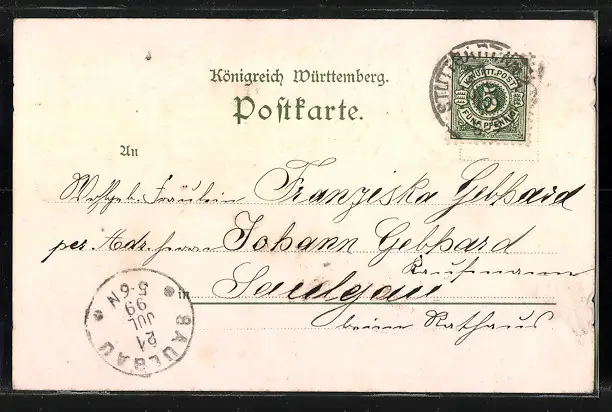 STUTTGART
K. WÜRTT. POST
5
FÜNF PFENNIG
Königreich Württemberg.
Postkarte.
An
Wohlgeb. Fräulein Franziska Gebhard
per Adr. Herrn Johann Gebhard
Kaufmann
in Saulgau
beim Rathaus
SAULGAU
21
JUL
99
5-6N